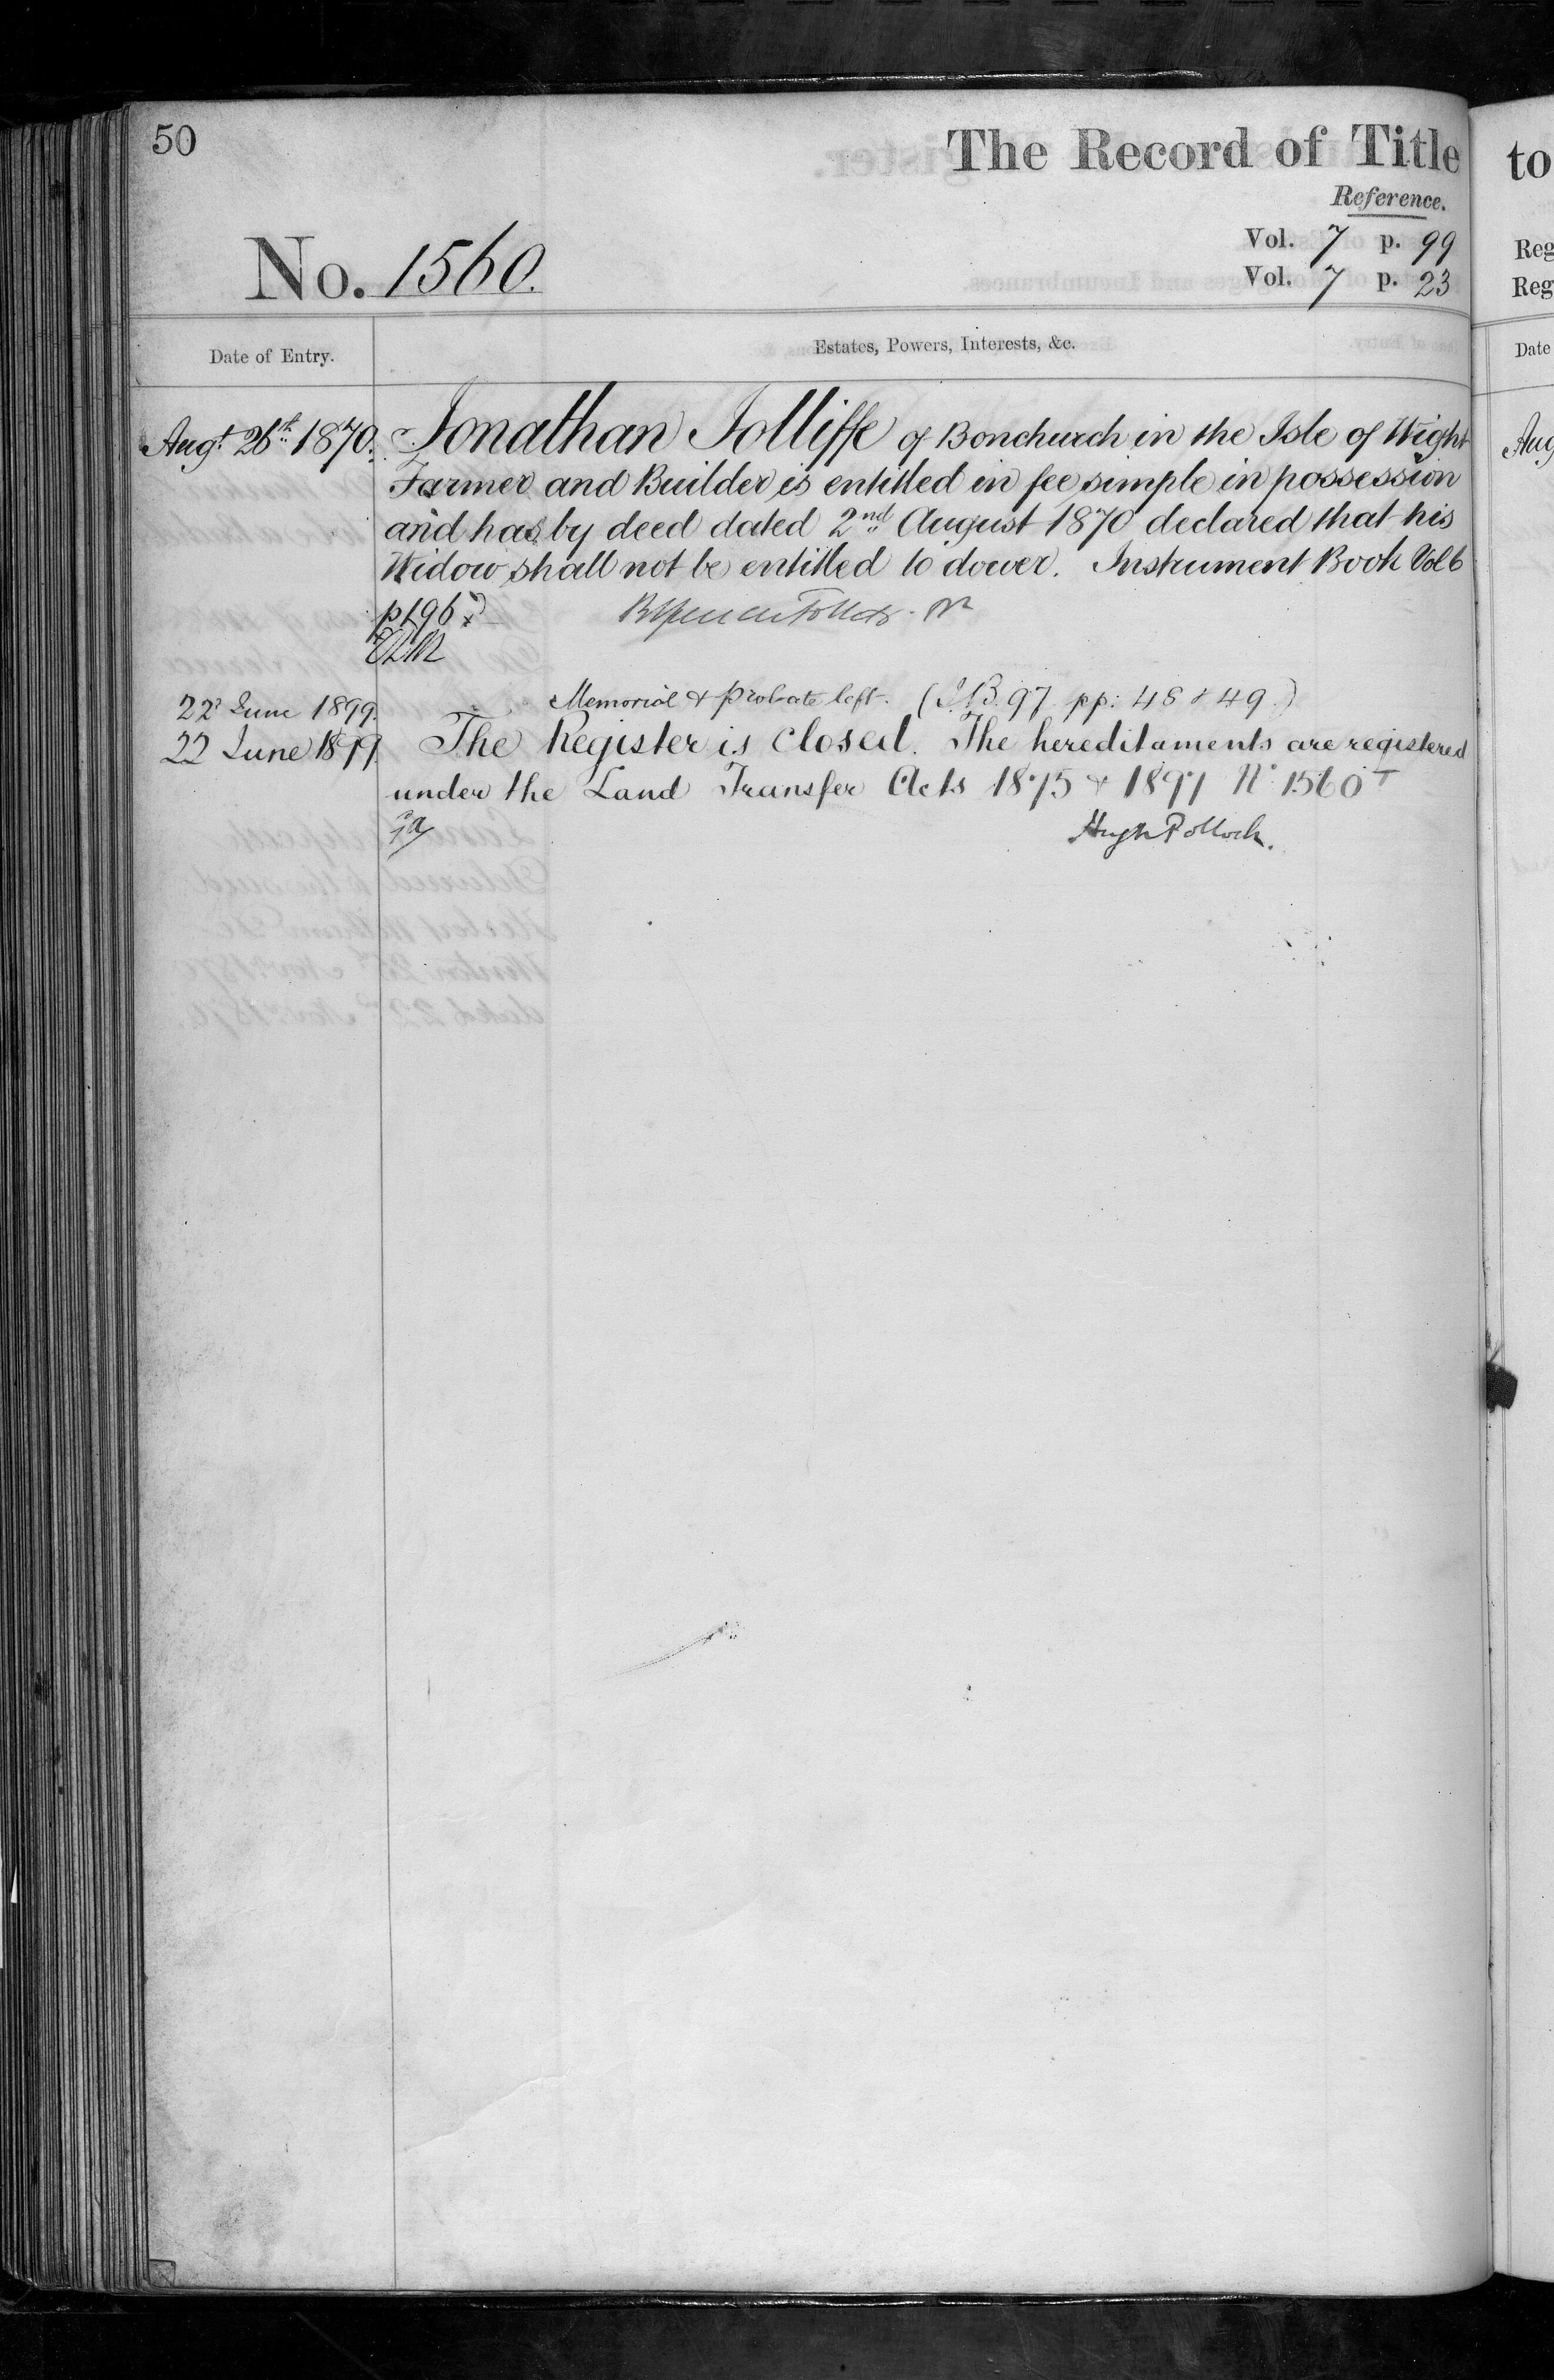 50
The Record of Title
to
Reference.
Vol. 7 p. 99
Reg
No. 1560.
Vol. 7 p. 23
Reg
Date of Entry.
Estates, Powers, Interests, &c.
Date
Augt. 26th 1870. Jonathan Jolliffe of Bonchurch in the Isle of Wight
Aug
Farmer and Builder is entitled in fee simple in possession
and has by deed dated 2nd August 1870 declared that his
Widow shall not be entitled to dower. Instrument Book Vol 6
p196
22 June 1899. Memorial & Probate left. (I.B. 97 pp: 48 & 49.)
22 June 1899 The Register is Closed. The hereditaments are registered
under the Land Transfer Acts 1875 & 1897 No 1560 T
Hugh Pollock.